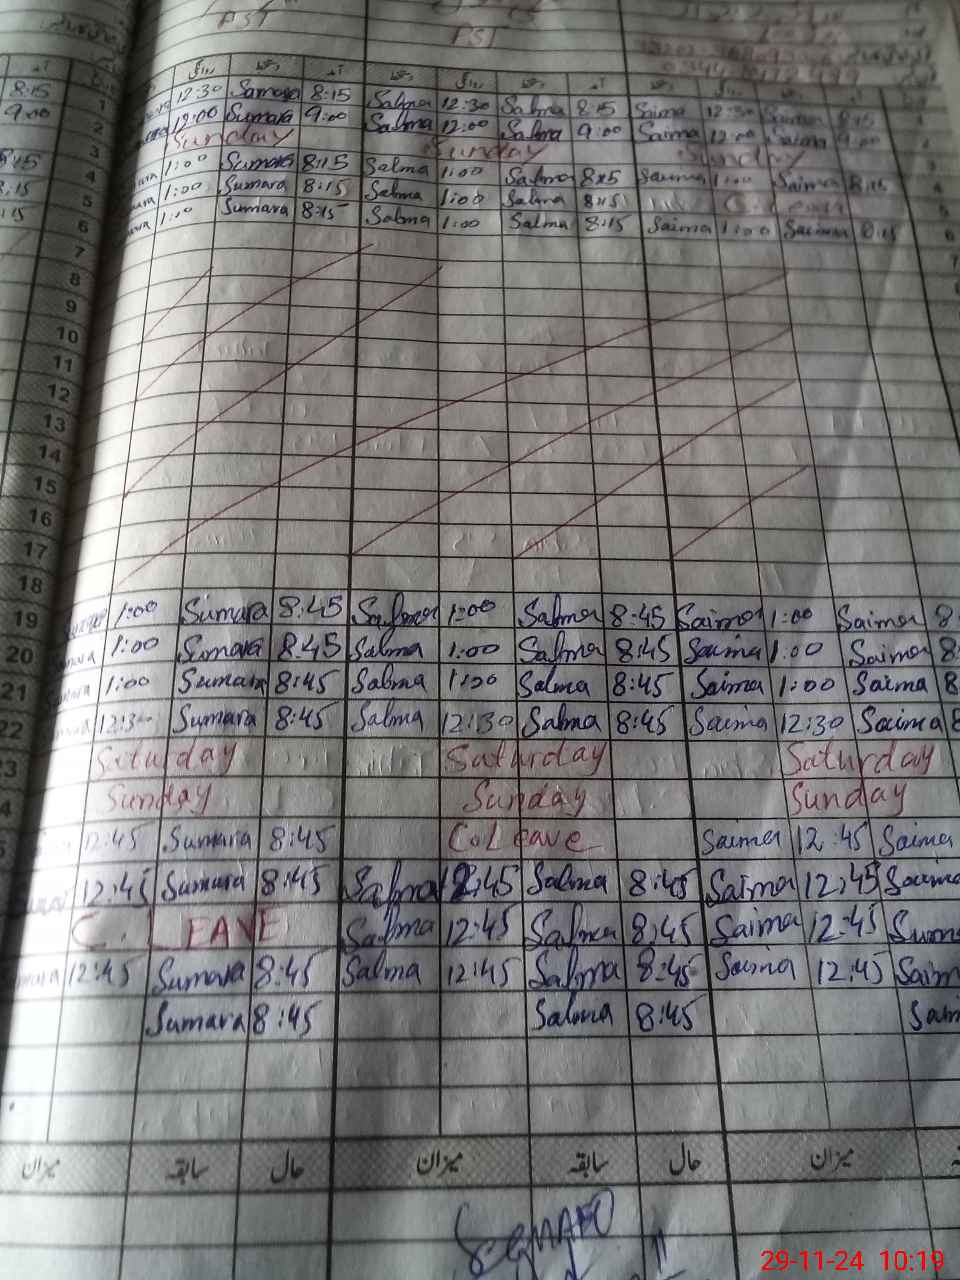 PST PST
روانگی دستخط آمد دستخط روانگی دستخط آمد دستخط روانگی دستخط
8:15 1 12:30 Samara 8:15 Salma 12:30 Salma 8:15 Saima 12:30 Saima 8:15
9:00 2 12:00 Sumara 9:00 Salma 12:00 Salma 9:00 Saima 12:00 Saima 9:00
3 Sunday Sunday Sunday
8:15 4 1:00 Sumara 8:15 Salma 1:00 Salma 8:15 Saima 1:00 Saima 8:15
8:15 5 1:00 Sumara 8:15 Salma 1:00 Salma 8:15
:15 6 1:00 Sumara 8:15 Salma 1:00 Salma 8:15 Saima 1:00 Saima 8:15
7
8
9
10
11
12
13
14
15
16
17
18
19 1:00 Sumara 8:45 Salma 1:00 Salma 8:45 Saima 1:00 Saima 8
20 1:00 Sumara 8:45 Salma 1:00 Salma 8:45 Saima 1:00 Saima 8
21 1:00 Sumara 8:45 Salma 1:00 Salma 8:45 Saima 1:00 Saima 8
22 12:30 Sumara 8:45 Salma 12:30 Salma 8:45 Saima 12:30 Saima 8
23 Saturday Saturday Saturday
4 Sunday Sunday Sunday
5 12:45 Sumara 8:45 C.Leave Saima 12:45 Saima
12:45 Sumara 8:45 Salma 12:45 Salma 8:45 Saima 12:45 Saima
C. LEAVE Salma 12:45 Salma 8:45 Saima 12:45
12:45 Sumara 8:45 Salma 12:45 Salma 8:45 Saima 12:45 Saim
Sumara 8:45 Salma 8:45 Saim
میزان سابقہ حال میزان سابقہ حال میزان
29-11-24 10:19